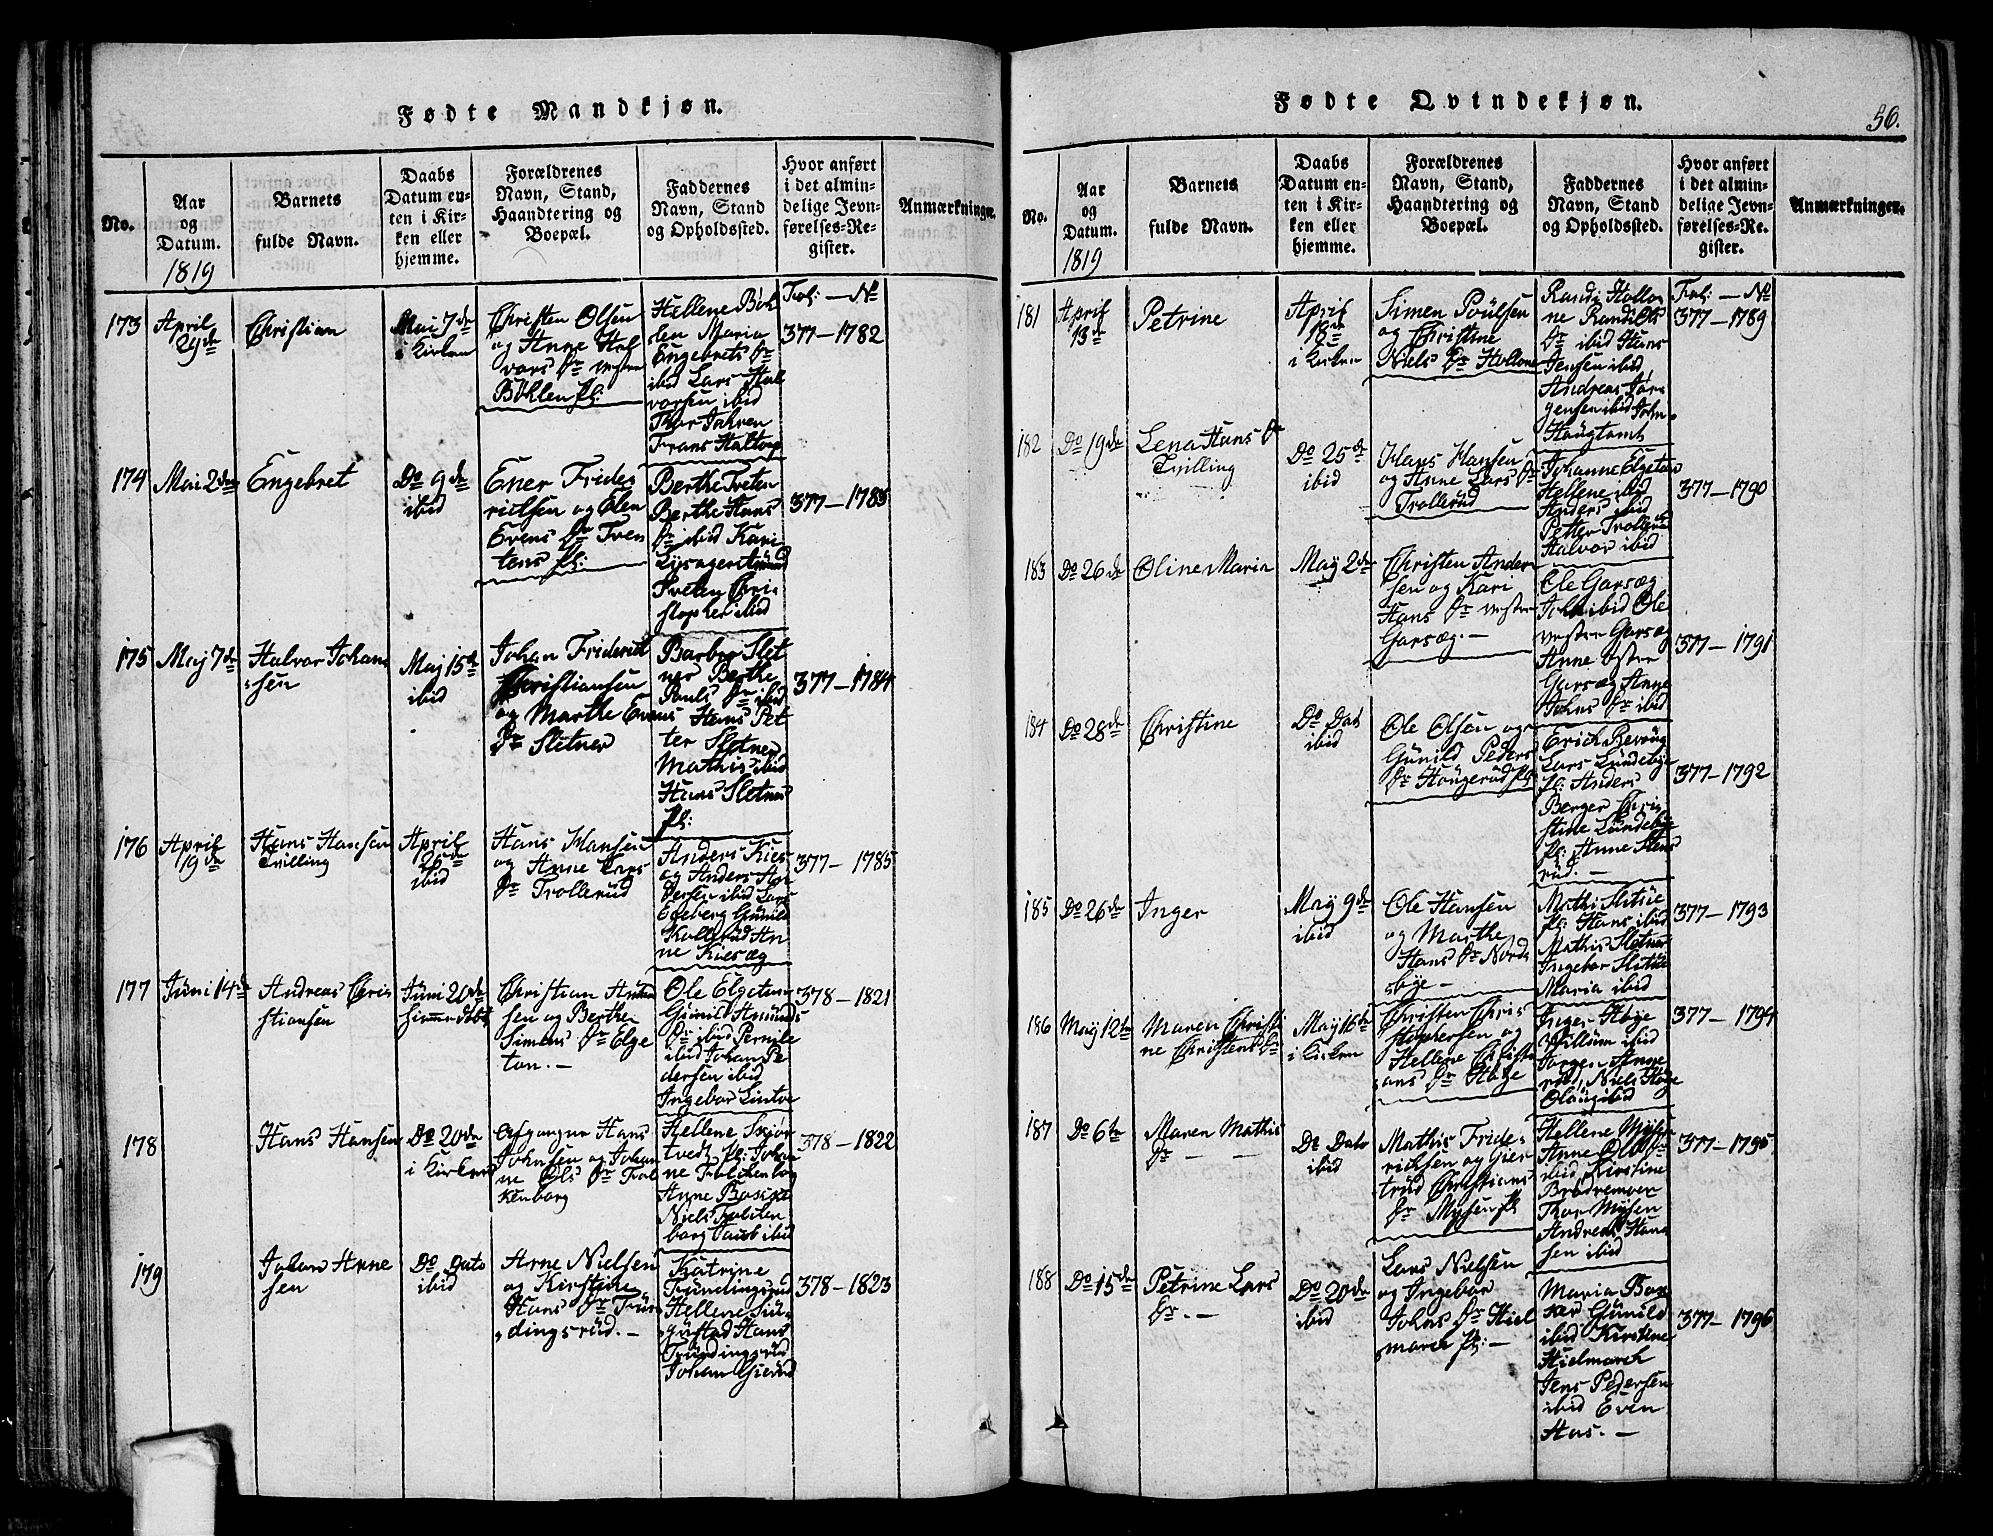 Fødte Mandkjøn.
No.
Aar
og
Datum.
1819
Barnets
fulde Navn.
Daabs
Datum en-
ten i Kir-
ken eller
hjemme.
Forældrenes
Navn, Stand,
Haandtering og
Boepæl.
Faddernes
Navn, Stand
og Opholdssted.
Hvor anført
i det almin-
delige Jevn-
førelses-Re-
gister.
Anmærkninger.
173
April
29de
Christian
Mai 7de
i Kirken
Christen Olsen
og Anne Hal
vors Dr vestre
Bøhlen pl:
Hellene Bøh
len Maria
Engebrets Dr
ibid Lars Hal
vorsen ibid
Thor Johren
Frans Haltorp
Fol: — No
377 — 1782
174
Mai 2den
Engebret
Do 9de
ibid
Ener Frider
richsen og Olen
Evens Dr Tven
tens pl:
Berthe Treten
Berthe Hans
Dr ibid Kari
Treten Chri
stopher ibid
377 — 1783
175
Maj 7de
Halvor Johan
sen
Maj 15de
ibid
Johan Friderich
Christiansen
og Marthe Evens
Dr Sletner
Barbar Slet
ner Berthe
Pauls Dr ibid
Hans Pet
ter Sletner
Mathis ibid
Hans Sletnes
pl:
377 — 1784
176
April
19de
Hans Hansen
Tvilling
April
25de
ibid
Hans Hansen
og Anne Lars
Dr Trollerud
Anders Kies
og Anders An
dersen ibid Lars
Egeberg Gunild
Kollerud An
ne Kiesæg
377 — 1785
177
Juni 14de
Andreas Chri
stiansen
Juni 20de
Christian Aman
sen og Berthe
Simens Dr Elge
ton. —
Ole Elgeton
Gunil Amunds
Dr ibid Pernile
ibid Johan Pe
dersen ibid
Ingebor Lintve
378 — 1821
178
Hans Hansen
Do 20de
i Kirken
Afgangne Hans
Johnsen og Johan
ne Ols Dr Fal
kenborg
Hellene Skjør
tvedt pl: Johan
ne Falchenborg
Anne
Niels Falchen
borg Jacob ibid
378 — 1822
179
Johan Arne
sen
Do Dato
ibid
Arne Nielsen
og Kirstine
Hans Dr Trün
dingsrüd. —
Katrine
Trundingsrud
Hellene
Hans
Trundingsrud
Johan
378 — 1823
Fødte Qvindekjøn.
56.
No.
Aar
og
Datum.
1819
Barnets
fulde Navn.
Daabs
Datum en-
ten i Kir-
ken eller
hjemme.
Forældrenes
Navn, Stand,
Haandtering og
Boepæl.
Faddernes
Navn, Stand
og Opholdssted.
Hvor anført
i det almin-
delige Jevn-
førelses-Re-
gister.
Anmærkninger.
181
April
13de
Petrine
April
18de
i Kirken
Simen Poülsen
og Christine
Niels Dr Hollone
Randi Hollo
ne Randi
Dr ibid Hans
Jensen ibid
Andreas Jør
gensen ibid John
Haugtomt
Fol: — No
377 — 1789
182
Do 19de
Lena Hans Dr
Tvilling
Do 25de
ibid
Hans Hansen
og Anne Lars Dr
Trollerüd
Johanne Elgeton
Hellene ibid
Anders ibid
Petter Trollerud
Halvor ibid
377 — 1790
183
Do 26de
Oline Maria
Maÿ 2den
Christen Ander
sen og Kari
Hans Dr vestre
Garsæg. —
Ole Garsæg
John ibid Ole
vestre Garsæg
Anne østre
Garsæg Anne
Johns Dr ibid
377 — 1791
184
Do 28de
Christine
Do Dat
ibid
Ole Olsen og
Günild Peders
Dr Haugerüd pl:
Erich Revoug
Lars Lündebye
pl: Anders
Berger Chri
stine Lündebye
pl: Anne Stens
rüd. —
377 — 1792
185
Do 26de
Inger
Maÿ 9de
ibid
Ole Hansen
og Marthe
Hans Dr Nords
bye —
Mathis Slitüe
pl: Hans ibid
Mathis Sletner
Ingebor Slitüe
Maria ibid
377 — 1793
186
Maÿ 12te
Maren Christi
ne Christens Dr
Maÿ 16de
i Kirken
Christen Chris
stophersen og
Hellene Christi
ans Dr Høÿe
Inger Høÿe
Willum ibid
Jørgen Anne
rüd, Niels Høÿe
Olaug ibid
377 — 1794
187
Do 6te
Maren Mathis
Dr — —
Do Dato
ibid
Mathis Fride-
richsen og Gier
trud Christians
Dr Mysen pl
Hellene Mysen
Anne Ols Dr
ibid Kirstine
Brødremoen
Thor Mysen
Andreas Han
sen ibid
377 — 1795
188
Do 15de
Petrine Lars
Dr. —
Do 20de
ibid
Lars Nielsen
og Ingebor
Johns Dr Hiel
march pl: —
Maria Bas
ker Günild
ibid Kirstine
Hielmarch
Jens Pedersen
ibid Even
Has. —
377 — 1796